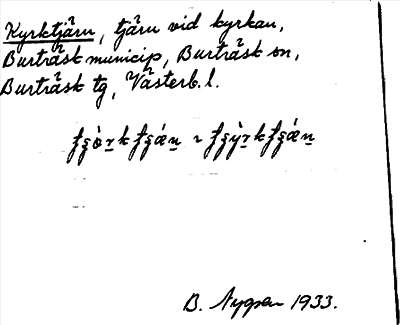 Kyrktjärn, tjärn vid kyrkan,
Burträsk municip, Burträsk sn,
Burträsk tg, Västerb. l.
B. Nygren 1933.